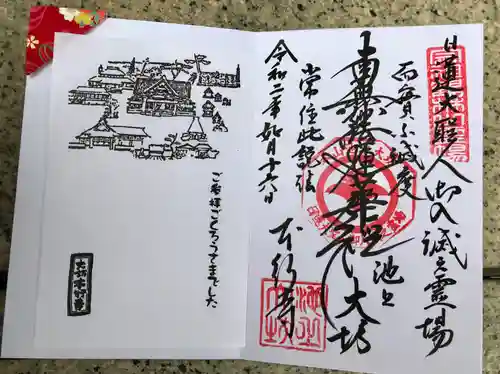 日蓮大聖人御入滅之霊場
而實不滅度
池上大坊
南無妙法蓮華経
常住此説法
本行寺
令和二年如月十六日
ご参拝ごくろうさまでした